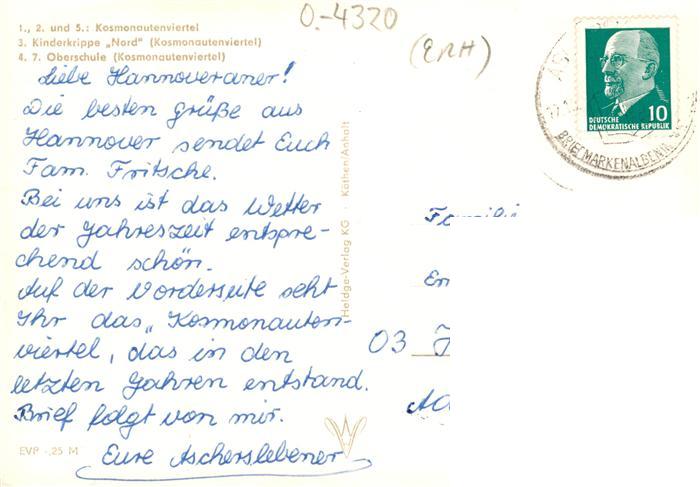 O.-4320
(ERH)
1., 2. und 5.: Kosmonautenviertel
3. Kinderkrippe „Nord" (Kosmonautenviertel)
4. 7. Oberschule (Kosmonautenviertel)
Liebe Hannoveraner!
Die besten Grüße aus
Hannover sendet Euch
Fam. Fritsche.
Bei uns ist das Wetter
der Jahreszeit entspre-
chend schön.
Auf der Vorderseite seht
Ihr das „Kosmonauten-
viertel, das in den
letzten Jahren entstand.
Brief folgt von mir.
Eure Ascherslebener
EVP -,25 M
Heldge-Verlag KG · Köthen/Anhalt
DEUTSCHE
DEMOKRATISCHE REPUBLIK
10
BRIEFMARKENALBEN
03